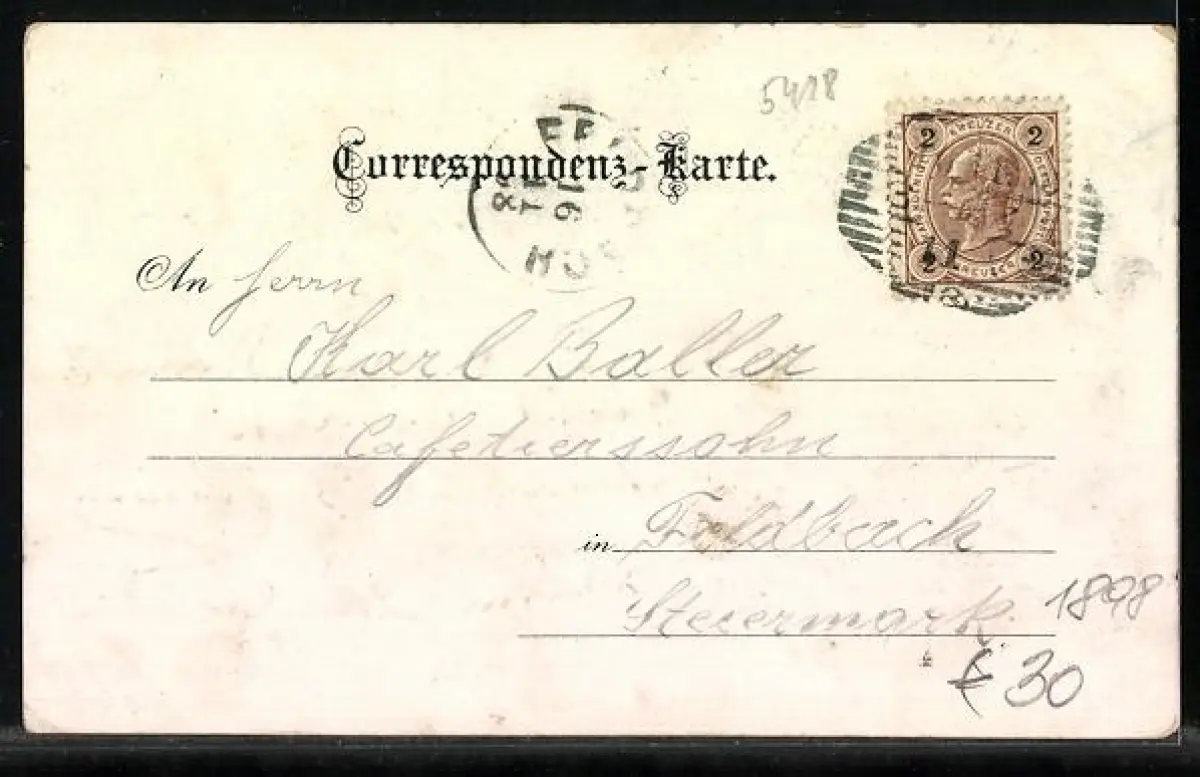 5418
Correspondenz-Karte.
2 KREUZER 2
2 KREUZER 2
11
An Herrn
Karl Baller
Cafetierssohn
in Feldbach
Steiermark
1898
€ 30